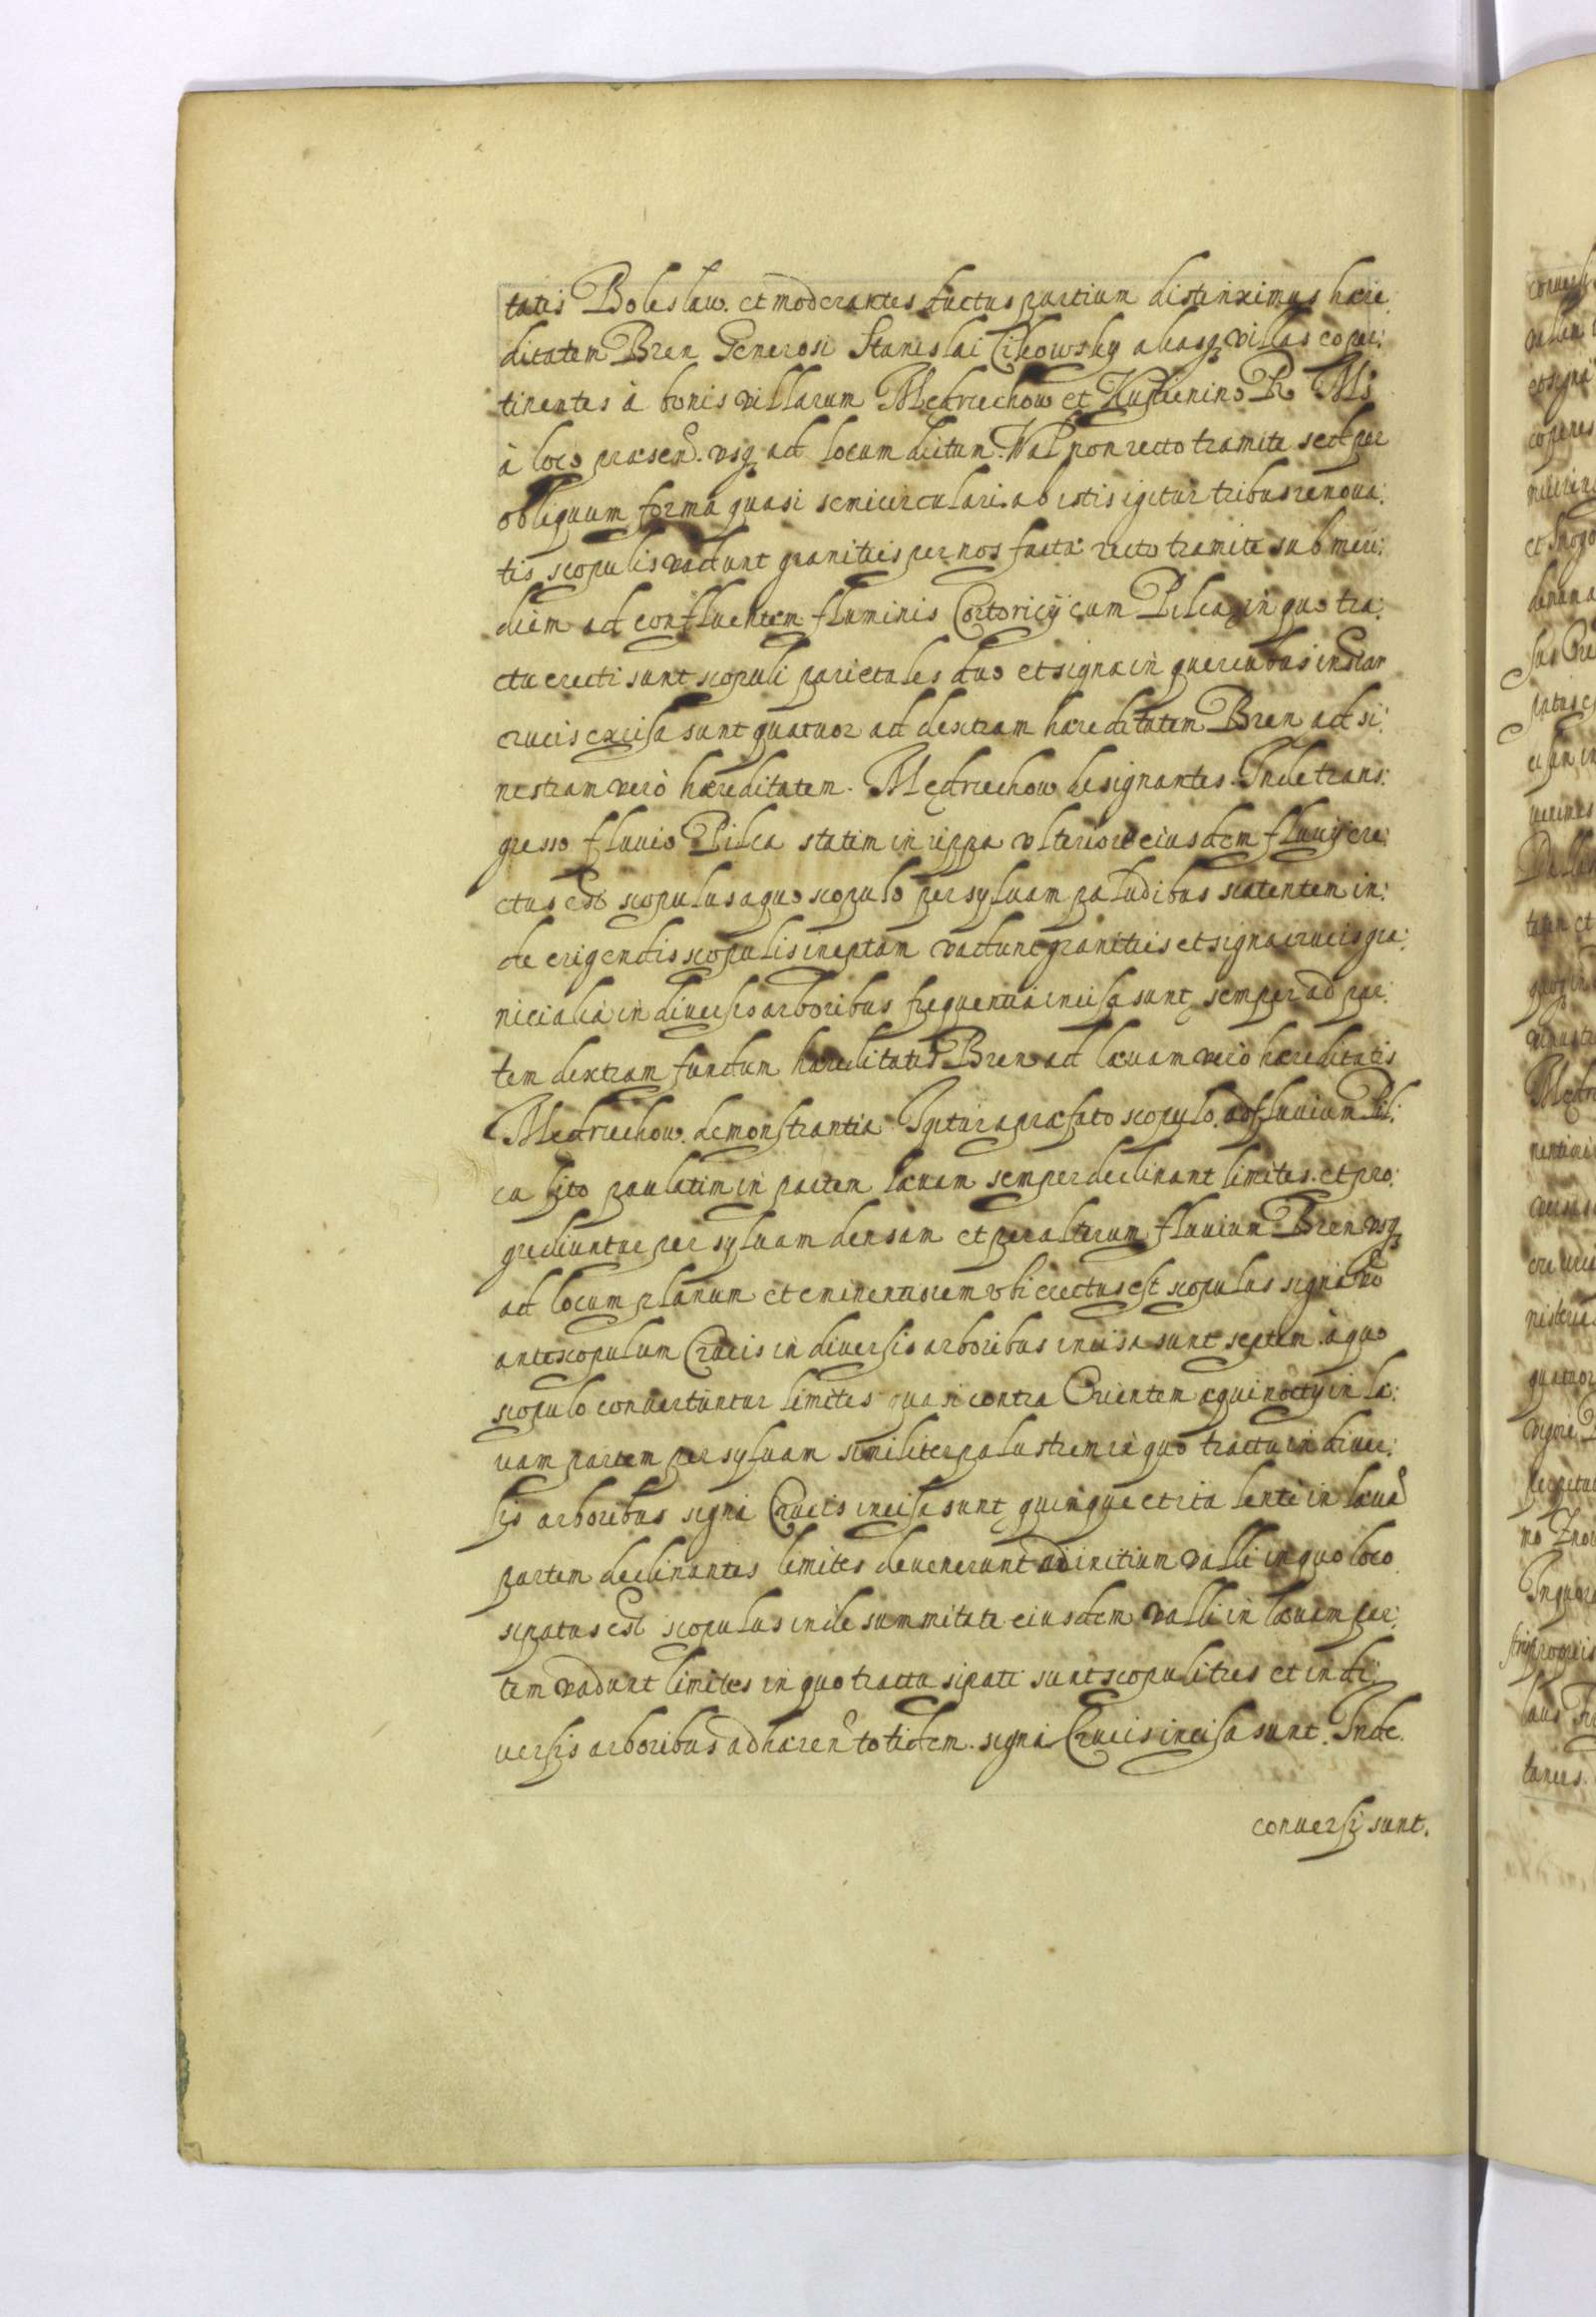 tatis Boleslaw. et moderantes fluctus partium distinximus hære
ditatem Bren Generosi Stanislai Cikowsky aliasq villas eo per:
tinentes à bonis villarum Mędrzechow et Kupienino R. Mtis
à loco præsen. vsq ad locum dictum. Wal non recto tramite sed per
obliquum forma quasi semicirculari. ab istis igitur tribus renoua:
tis scopulis vadunt granities per nos factæ recto tramite sub meri:
diem ad confluentem fluminis Czortoricij cum Pilcza in quo tra:
ctu erecti sunt scopuli parietales duo et signa in quercubus instar
crucis excisa sunt quatuor ad dextram hæreditatem Bren ad si:
nistram verò hæreditatem. Mędrzechow designantes. Inde trans:
gresso fluuio Pilca statim in rippa vlteriore eiusdem fluuij ere:
ctus est scopulus a quo scopulo per syluam paludibus scatentem in:
de erigendis scopulis ineptam vadunt granities et signa crucis gra:
nicialia in diuersis arboribus frequentia incisa sunt, semper ad par:
tem dextram fundum hæreditatis Bren ad læuam verò hæreditatis
Mędrzechow. demonstrantia Igitur a præfato scopulo. ad fluuium Pil:
ca sito paulatim in partem læuam semper declinant limites. et pro:
grediuntur per syluam densam et per alterum fluuium Bren vsq
ad locum planum et eminentiorem vbi erectus est scopulus signa vo
ante scopulum Crucis in diuersis arboribus incisa sunt septem. à quo
scopulo conuertuntur limites quasi contra Orientem æquinoctij in læ:
uam partem per syluam similiter palustrem in quo tractu in diuer:
sis arboribus signa Crucis incisa sunt quinque et ita lentè in læuā
partem declinantes limites deuenerunt ad initium valli in quo loco
sipatus est scopulus inde summitate eiusdem valli in læuam par:
tem vadunt limites in quo tractu sipati sunt scopuli tres et in di:
uersis arboribus adhæren totidem. signa Crucis incisa sunt. Inde.
conuersi sunt.